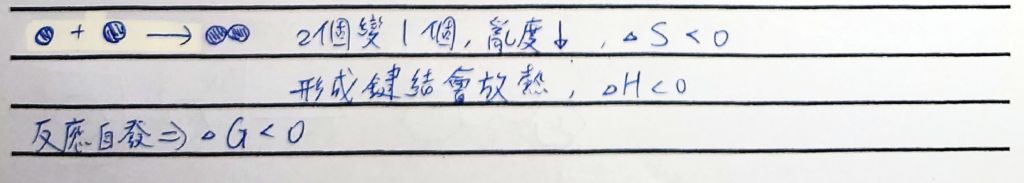 + → 2個變1個, 亂度↓, △S<0
形成鍵結會放熱, △H<0
反應自發⇒△G<0